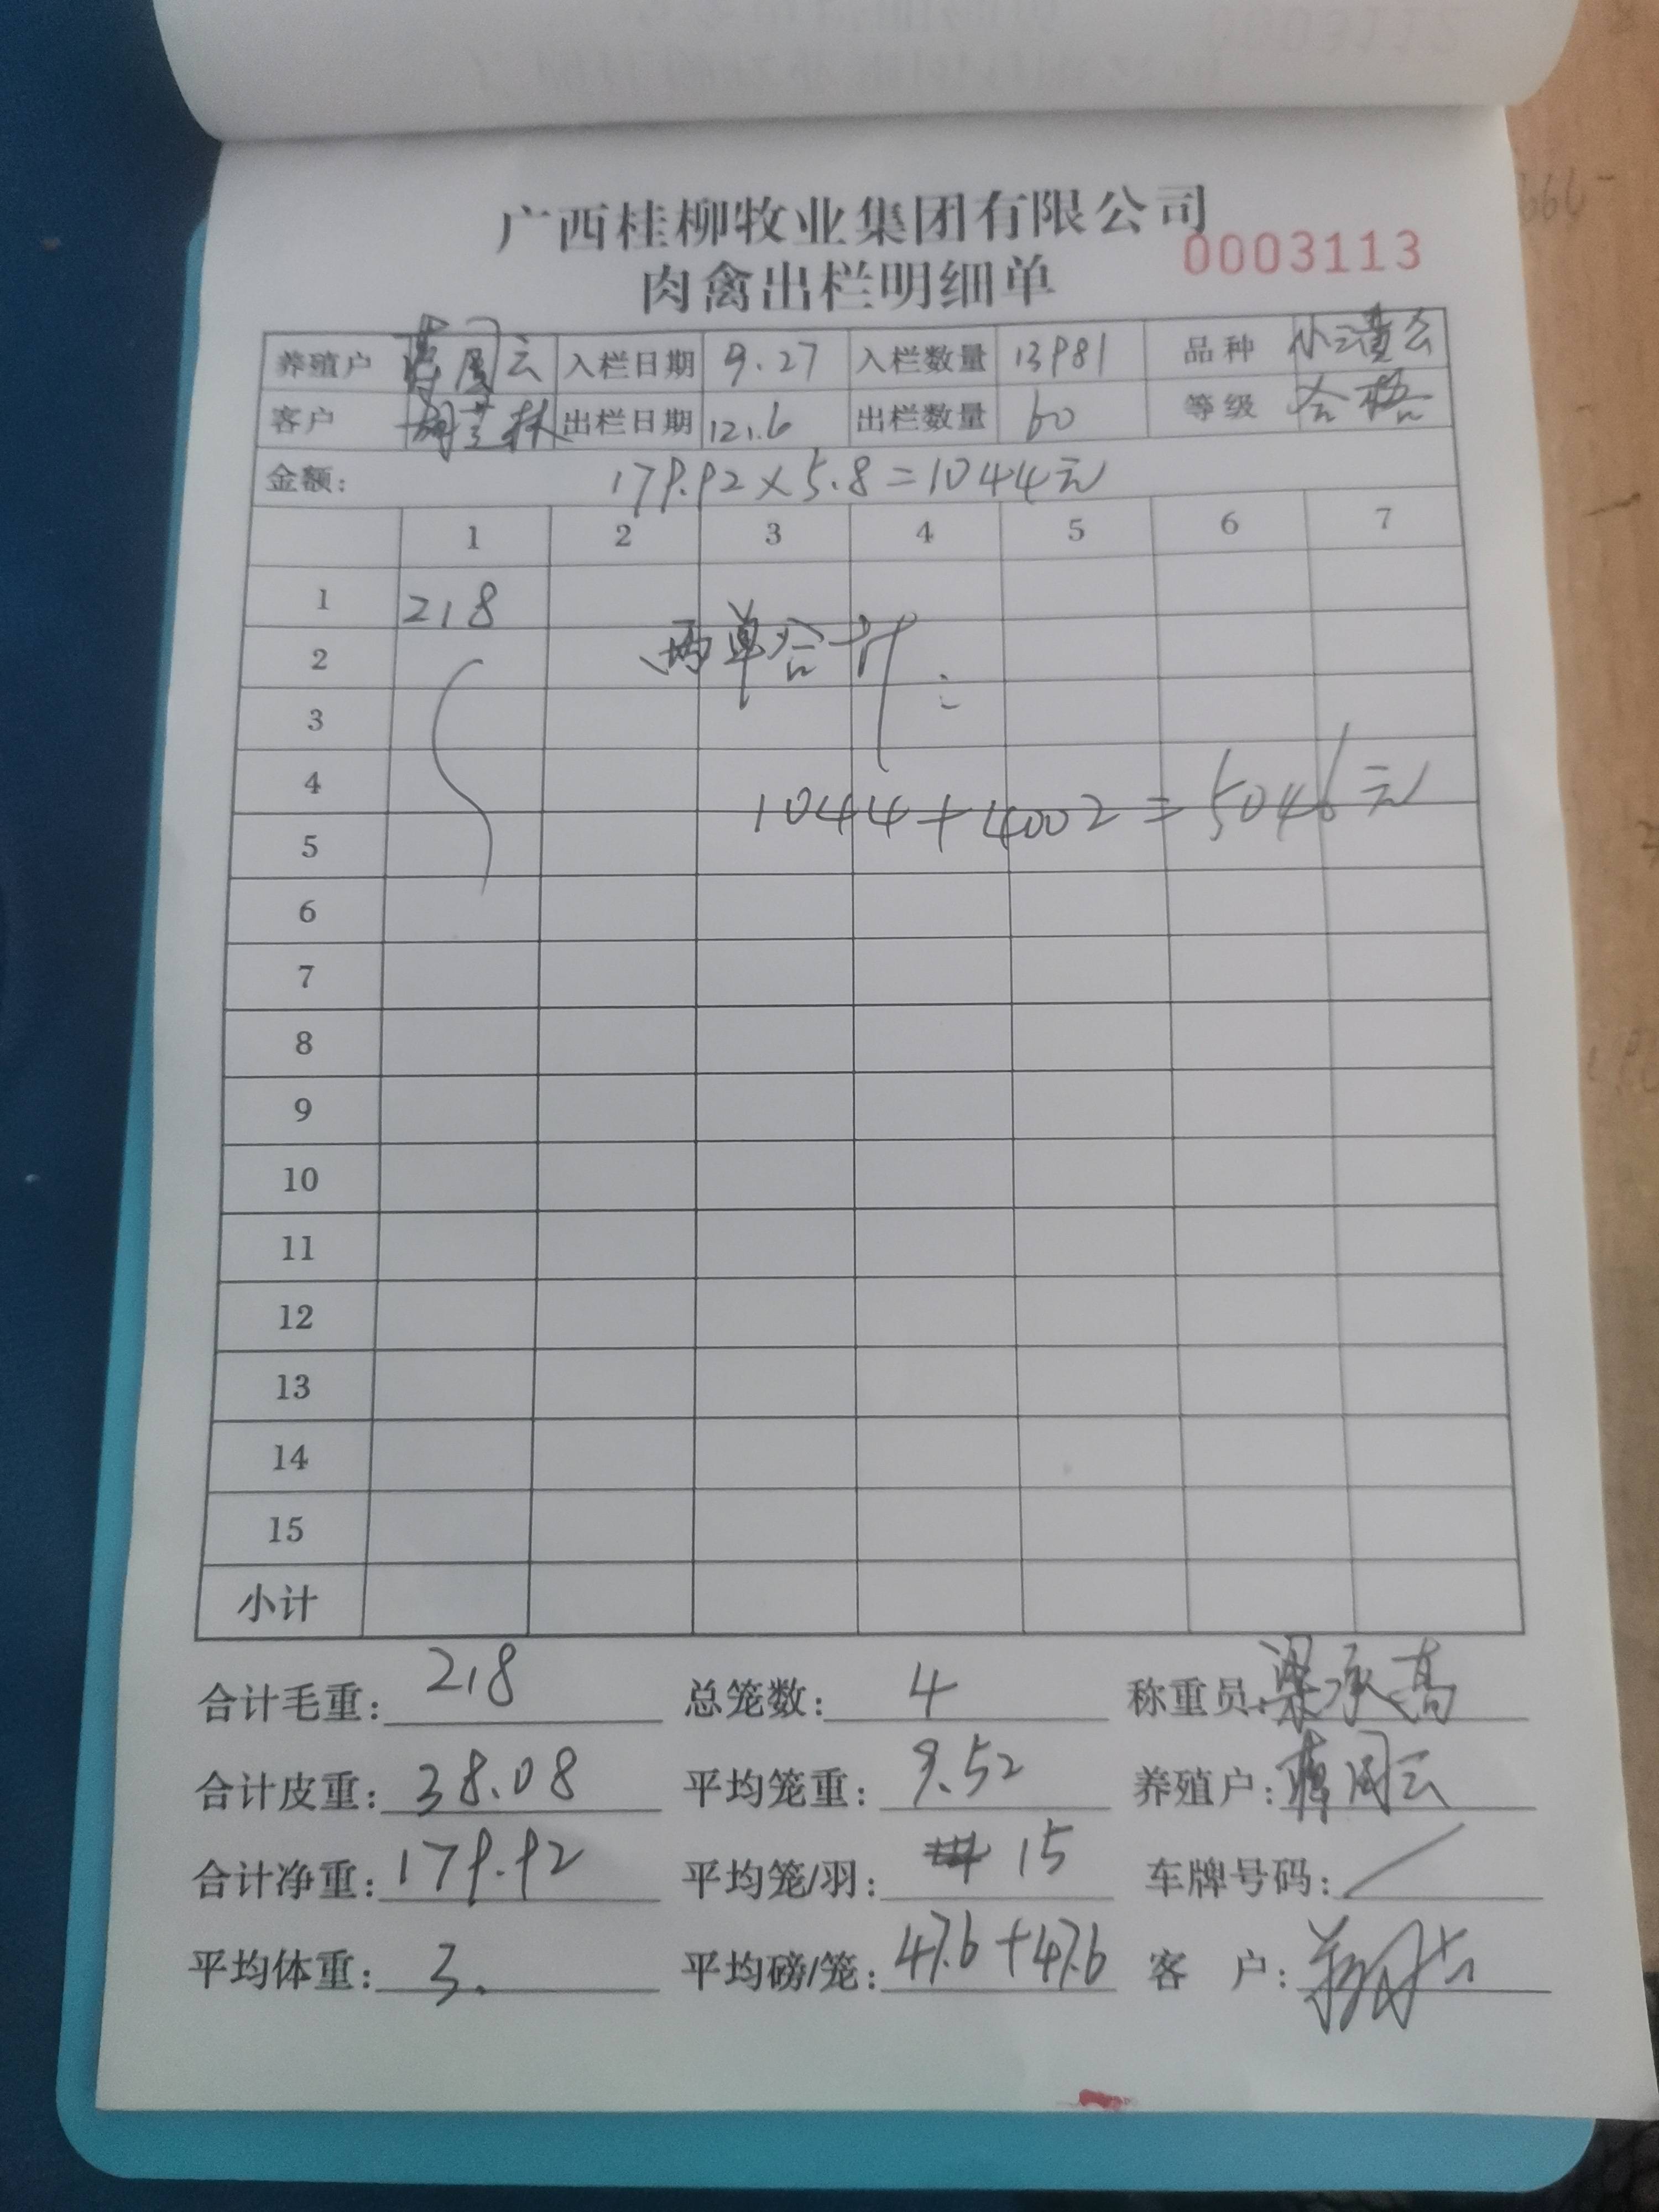 广西桂柳牧业集团有限公司
肉禽出栏明细单 0003113
养殖户 蒋周云 入栏日期 9.27 入栏数量 13981 品种
客户 胡芝林 出栏日期 12.6 出栏数量 60 等级 合格
金额: 179.92×5.8=1044元
1 2 3 4 5 6 7
1 218
2 两单合计:
3
4 1044+4002=5046元
5
6
7
8
9
10
11
12
13
14
15
小计
合计毛重: 218 总笼数: 4 称重员: 梁承高
合计皮重: 38.08 平均笼重: 9.52 养殖户: 蒋周云
合计净重: 179.92 平均笼/羽: 15 车牌号码: /
平均体重: 3. 平均磅/笼: 47.6+47.6 客 户: